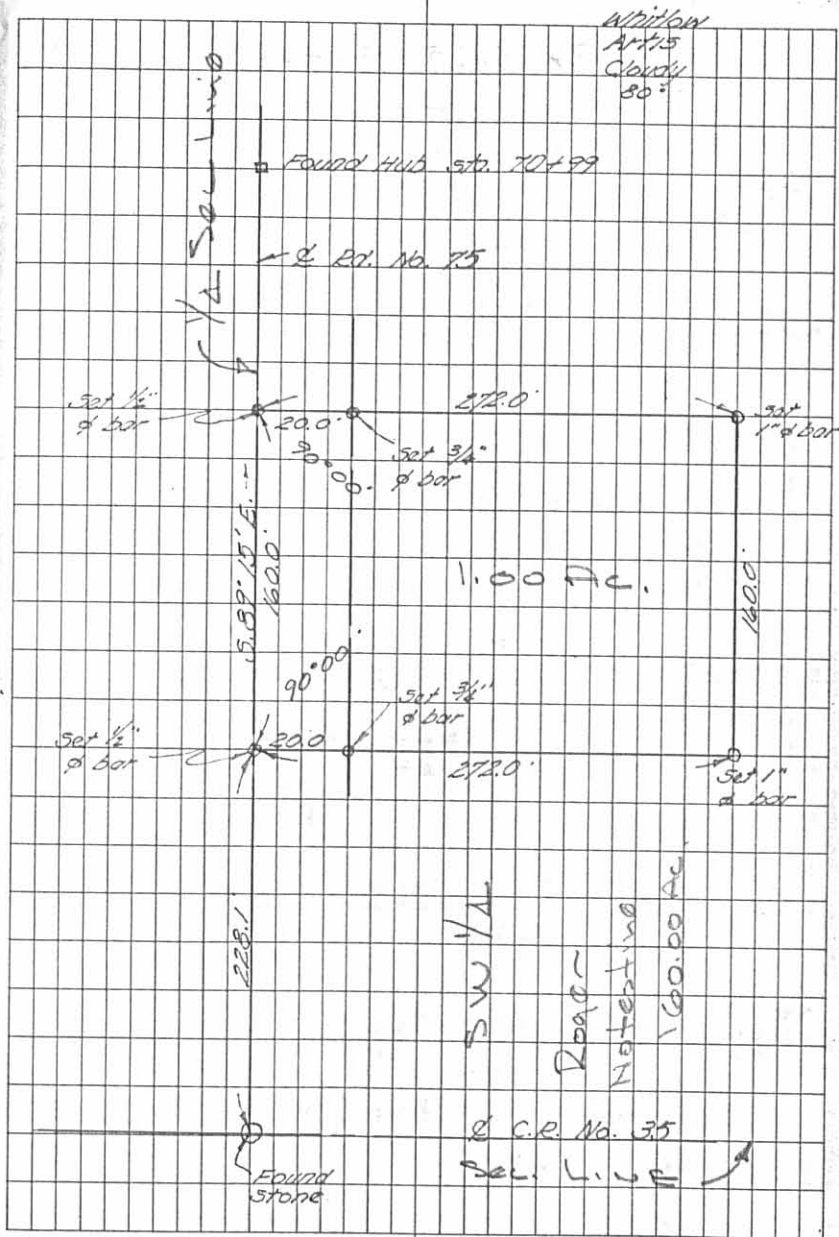 Whitlow
Artis
Cloudy
80°
1/4 Sec Line
Found Hub sta. 70+99
℄ Rd. No. 75
Set 1/2"
ø bar
20.0'
272.0'
Set
1" ø bar
Set 3/4"
ø bar
90°00'
S.89°15'E.--
160.0'
1.00 Ac.
160.0'
90°00'
Set 3/4"
ø bar
Set 1/2"
ø bar
20.0
272.0'
Set 1"
ø bar
228.1'
SW 1/4
Roger
Notestine
160.00 Ac.
℄ C.R. No. 35
Sec. Line
Found
stone